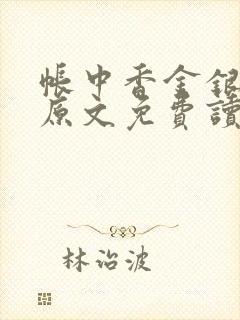 帳中香金銀
原文免費讀
林治波